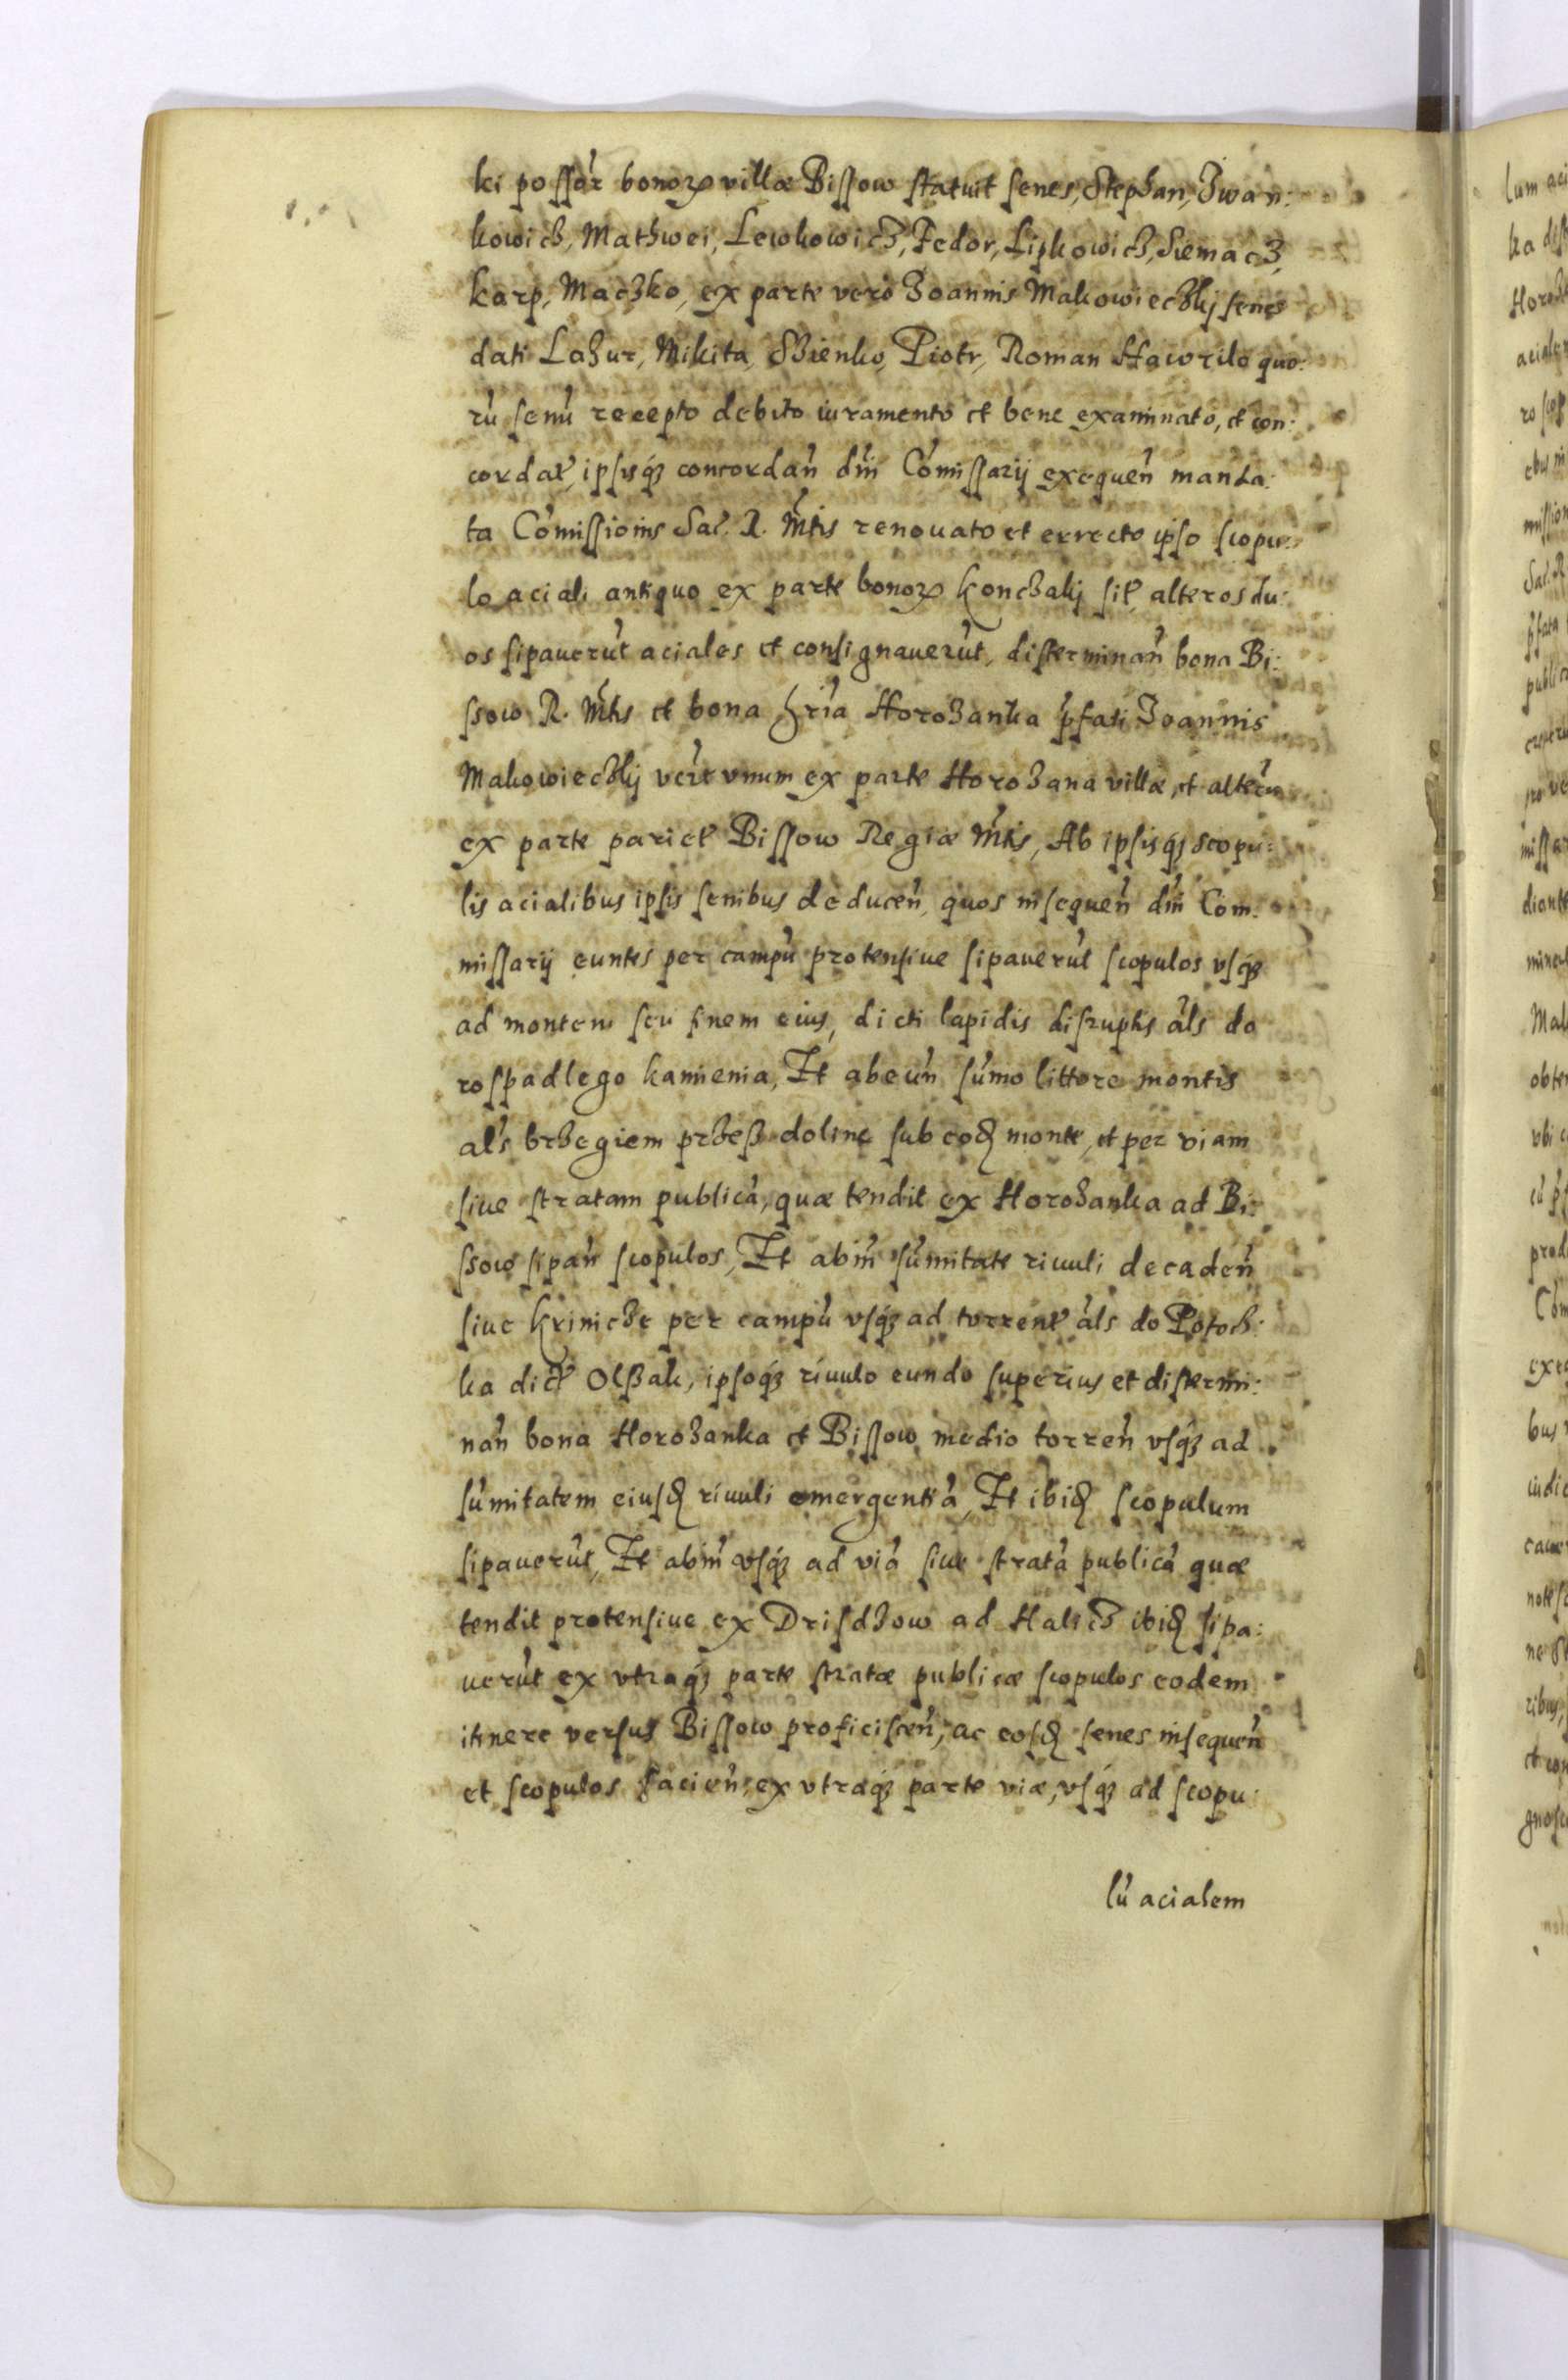 ki possőr bonorꝝ villæ Bissow statuit senes, Stephan, Iwan:
kowicz, Mathwei, Lewkowicz, Fedor, Lipkowicz, Siemacz,
karp, Maczko, ex parte vero Joannis Makowieczkij senes
dati Lazur, Mikita, Szienko, Piotr, Roman Hawrilo quo:
rū senū recepto debito iuramento et bene examinato, et con:
cordat̃, ipsisqȝ concordan̄ dn̄i Com̄issarij exequen̄ manda:
ta Com̄issionis Sac̃. R. Mtis renouato et errecto ipso scopu:
lo aciali antiquo ex parte bonorꝝ Konczakij sit̃, alteros du:
os sipauerūt aciales et consignauerūt, disterminan̄ bona Bi:
ssow R. Mtis et bona hr̄ia Horozanka p̄fati Joannis
Makowieczkij vert̃ vnum ex parte Horozana villæ, et alterū
ex parte pariet̃ Bissow Regiæ Mtis, Ab ipsisqȝ scopu:
lis acialibus ipsis senibus deducen̄, quos insequen̄ dn̄i Com:
missarij euntes per campū protensiue sipauerūt scopulos vsqȝ
ad montem seu finem eius, dicti lapidis disruptis al̄s do
rospadlego kamienia, Et abeun̄ sum̄o littore montis
al̄s brzegiem przeß doline sub eodꝫ monte, et per viam
siue stratam publicā, quæ tendit ex Horozanka ad Bi:
ssow sipan̄ scopulos, Et abin̄ sum̄itate riuuli decaden̄
siue krinicze per campū vsqȝ ad torrent̃ al̄s do Potocz:
ka dict̃ Olßak, ipsoqȝ riuulo eundo superius et distermi:
nan̄ bona Horozanka et Bissow medio torren̄ vsqȝ ad
sum̄itatem eiusdꝫ riuuli emergentiā, Et ibidꝫ scopulum
sipauerūt, Et abin̄ vsqȝ ad viā siue stratā publicā quæ
tendit protensiue ex Drisdzow ad Halicz ibidꝫ sipa:
uerūt ex vtraqȝ parte stratæ publicæ scopulos eodem
itinere versus Bissow proficiscen̄, ac eosdꝫ senes insequen̄
et scopulos facien̄, ex vtraqȝ parte viæ, vsqȝ ad scopu:
lū acialem